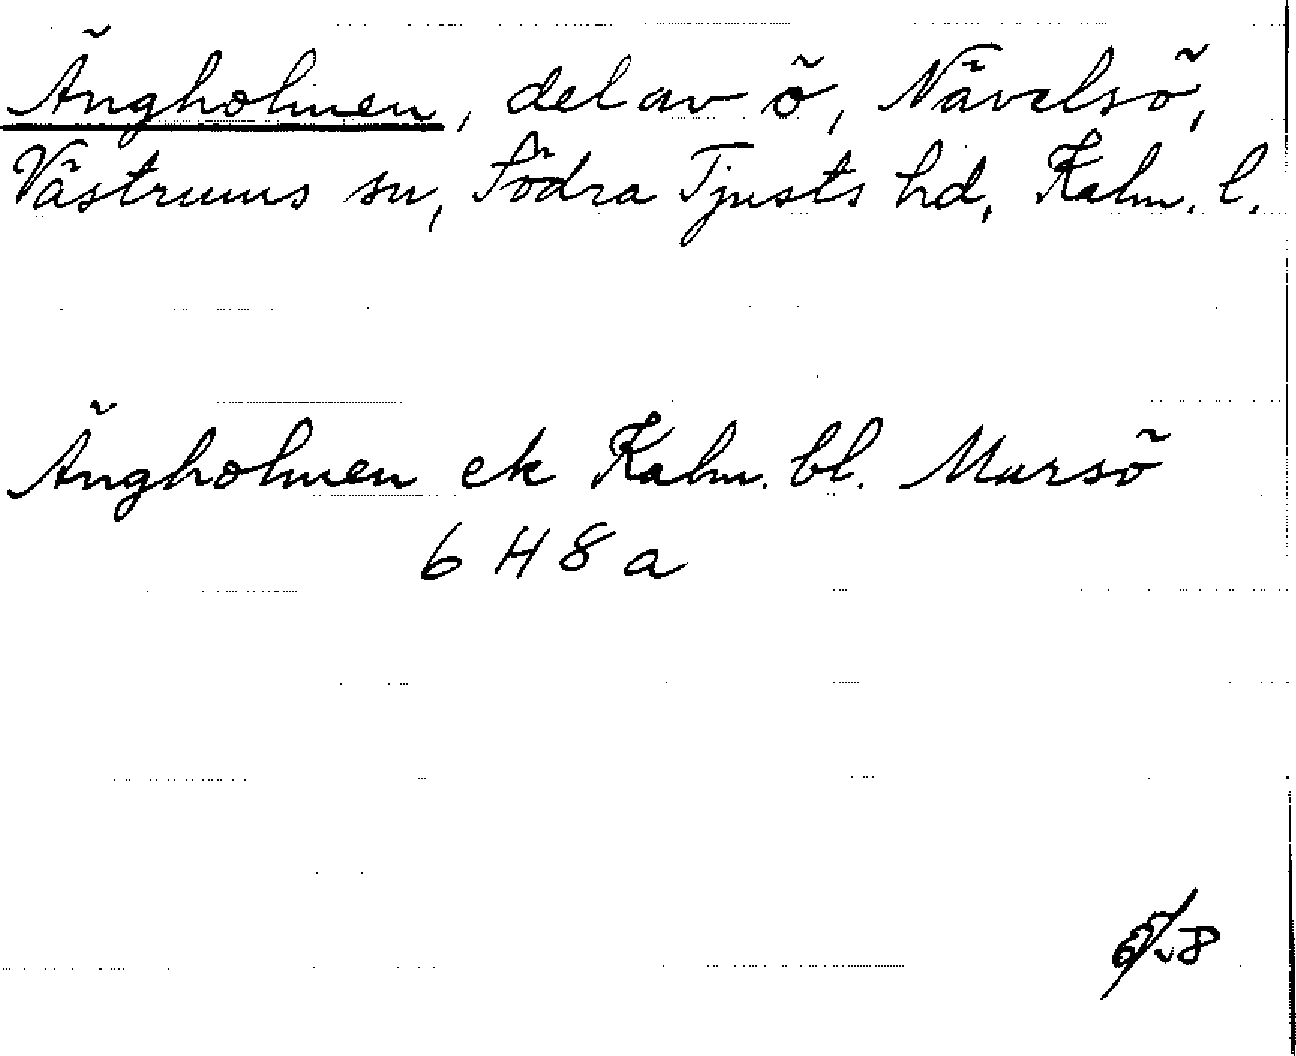 Ängholmen, del av ö, Nävelsö,
Västrums sn, Södra Tjusts hd, Kalm. l.
Ängholmen ek Kalm. bl. Mursö
6 H 8 a